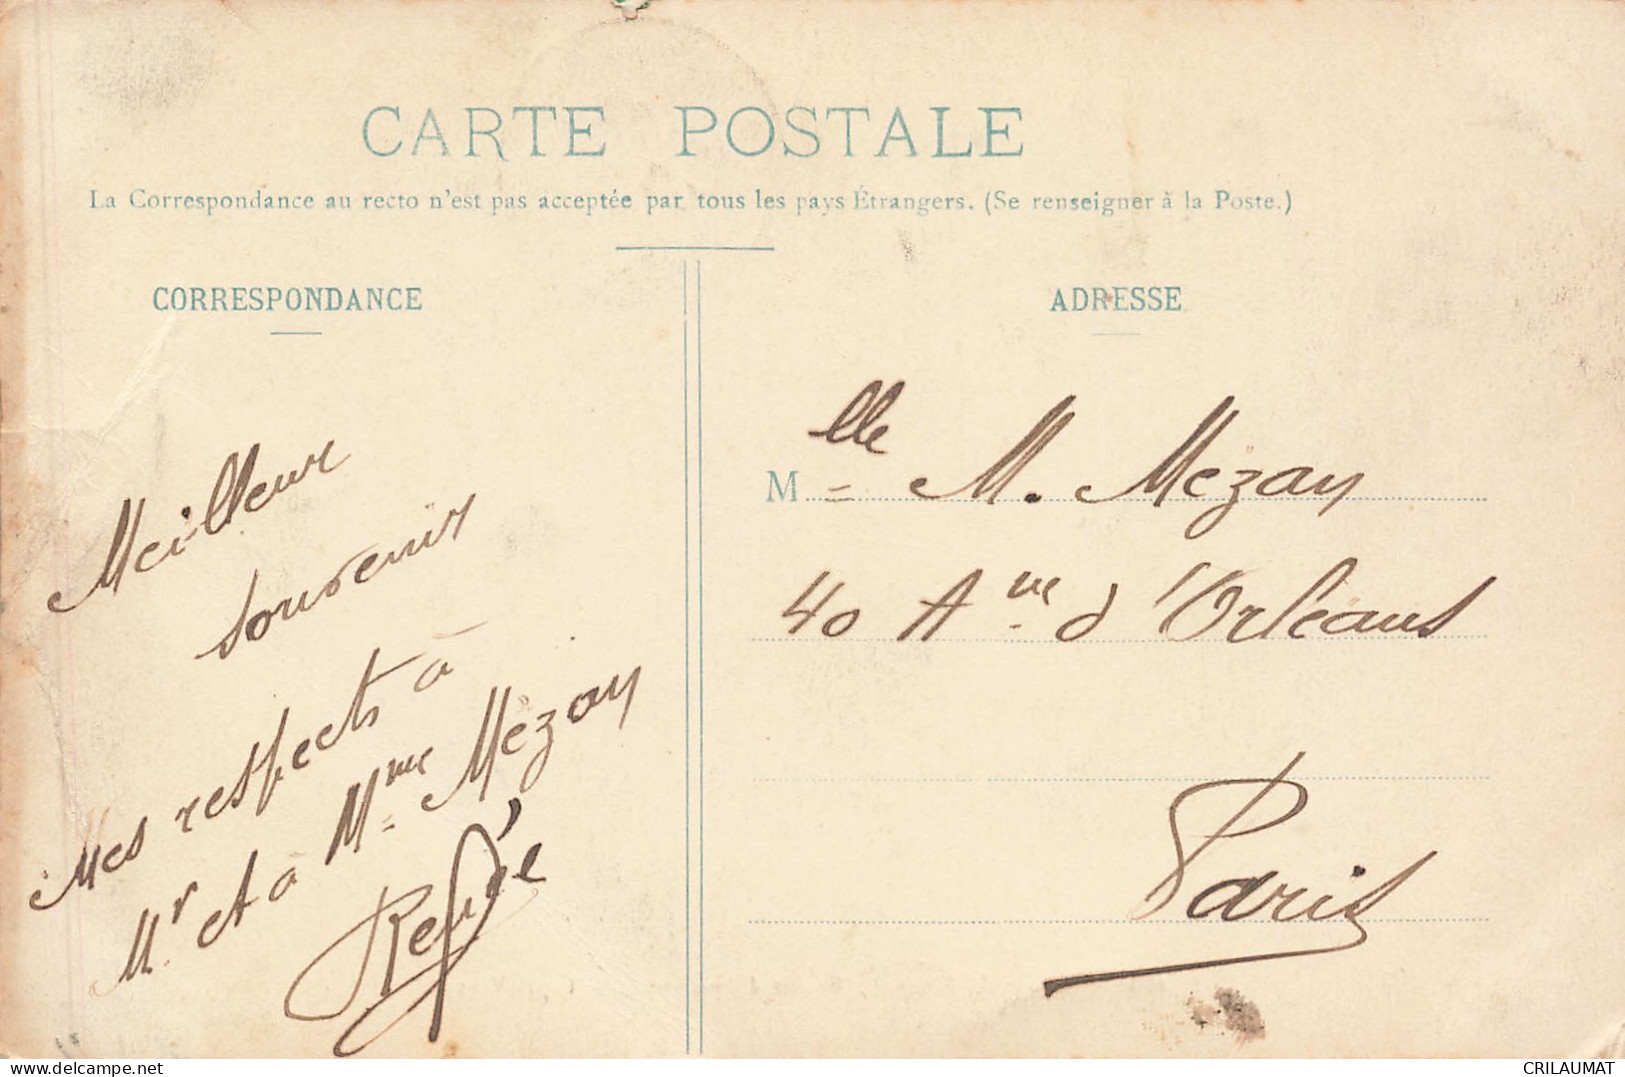 CARTE POSTALE
La Correspondance au recto n'est pas acceptée par tous les pays Étrangers. (Se renseigner à la Poste.)
CORRESPONDANCE
Meilleur
souvenir
Mes respects à
Mr et à Mme Mézan
René
ADRESSE
Mlle M. Mezan
40 Ave d'Orléans
Paris
delcampe.net
CRILAUMAT